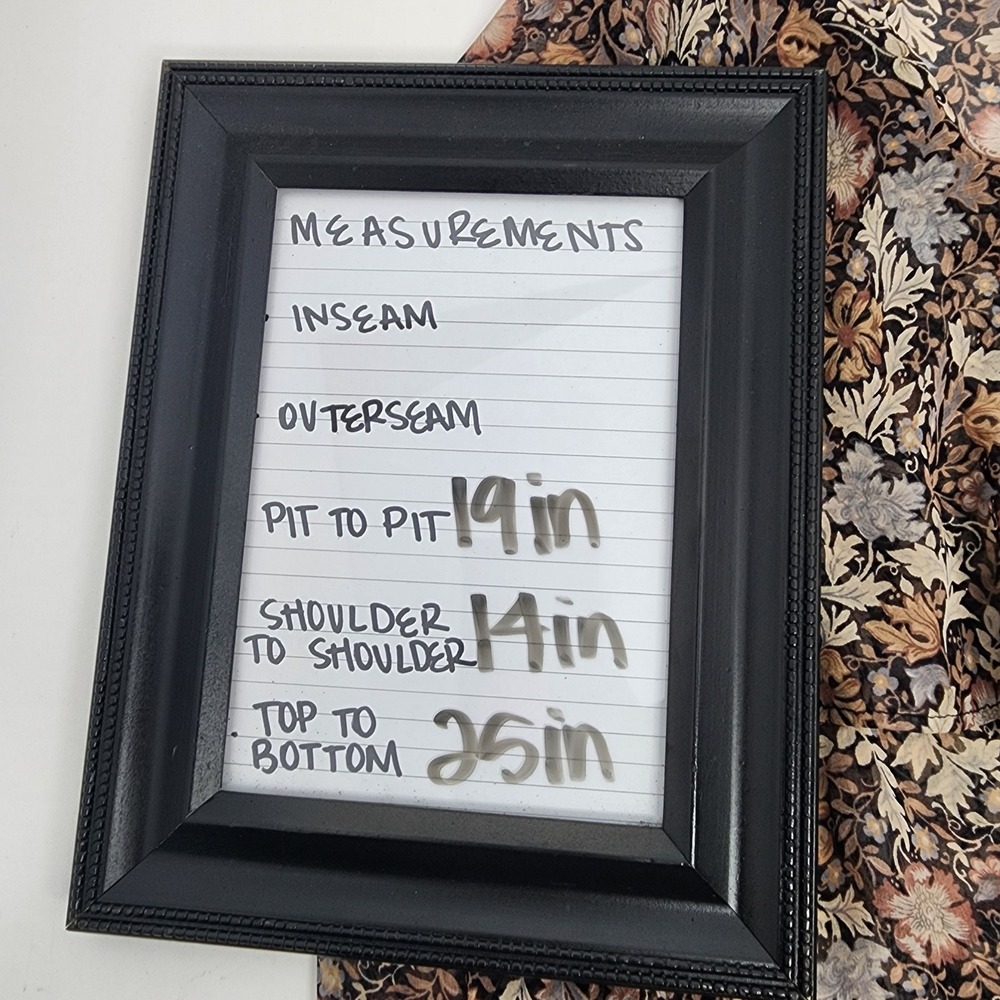 MEASUREMENTS
INSEAM
OUTERSEAM
PIT TO PIT 19in
SHOULDER
TO SHOULDER 14in
TOP TO
BOTTOM 25in